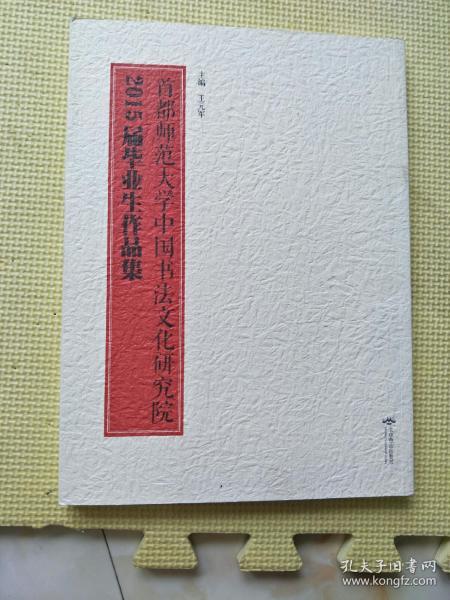 首都师范大学中国书法文化研究院
2015届毕业生作品集
主编 王元军
孔夫子旧书网
www.kongfz.com